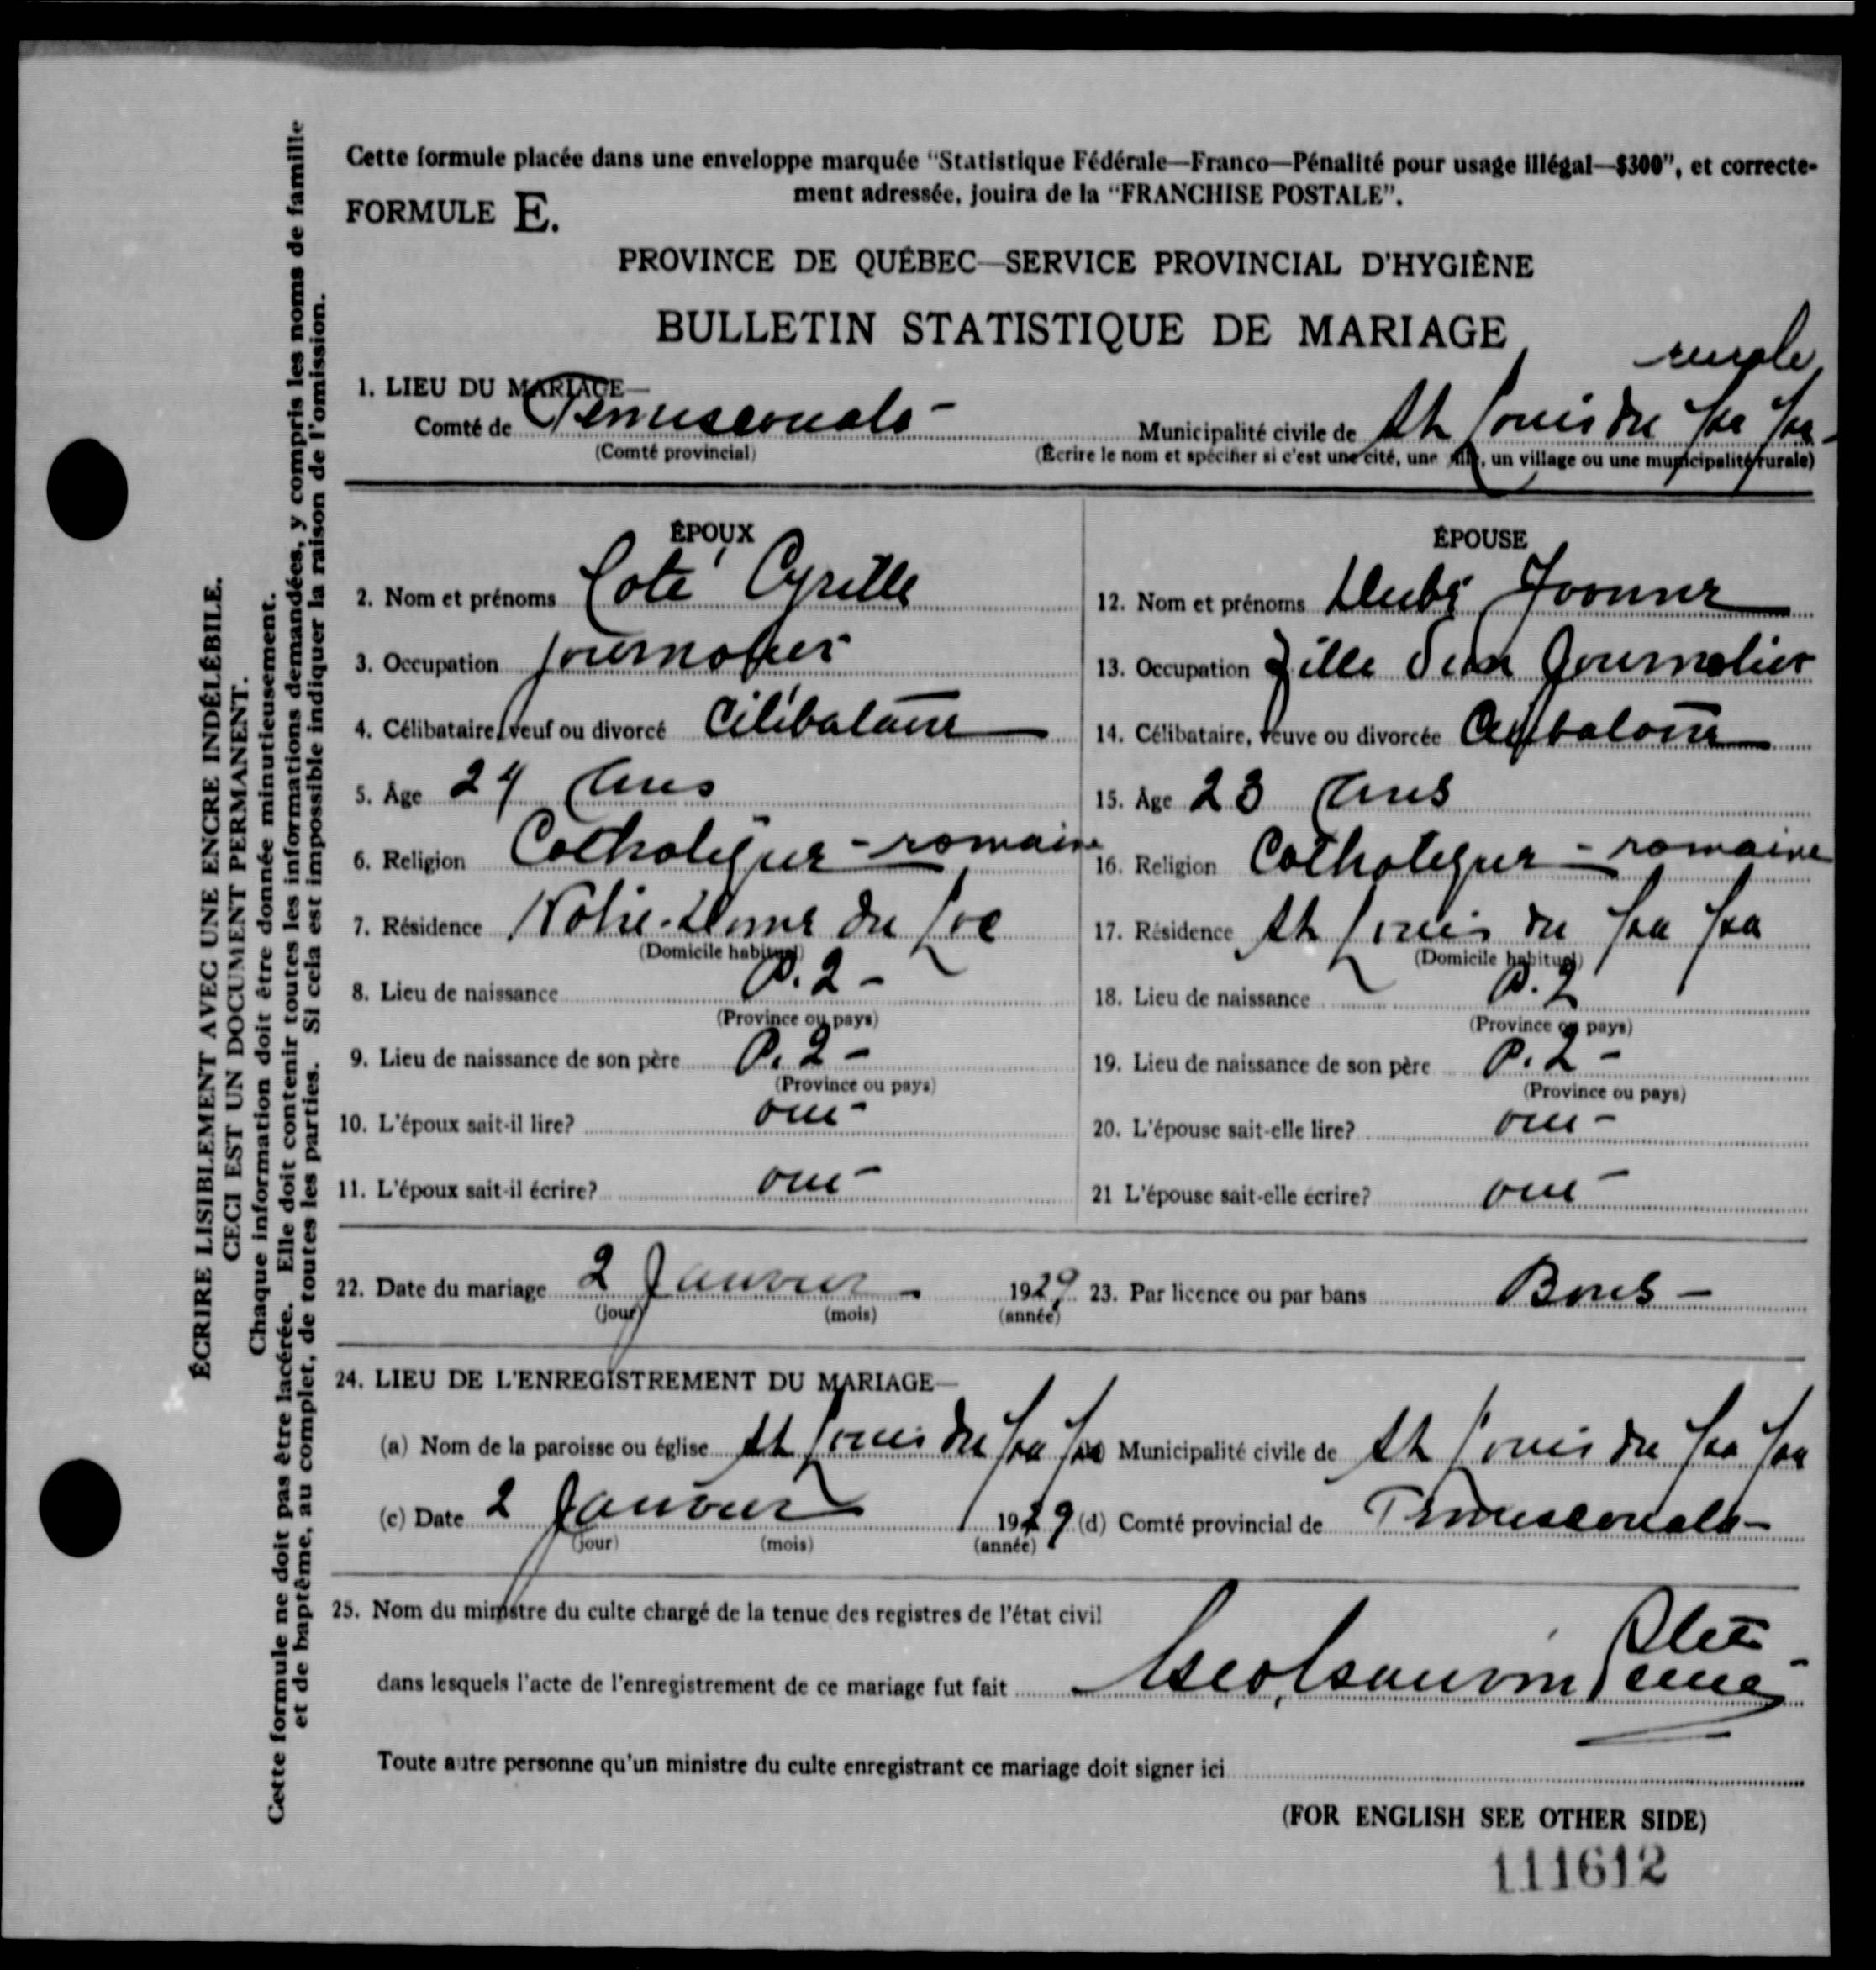 Cette formule placée dans une enveloppe marquée "Statistique Fédérale—Franco—Pénalité pour usage illégal—$300", et correcte-
ment adressée, jouira de la "FRANCHISE POSTALE".
FORMULE E.
PROVINCE DE QUÉBEC—SERVICE PROVINCIAL D'HYGIÈNE
BULLETIN STATISTIQUE DE MARIAGE
rurale
1. LIEU DU MARIAGE—
Comté de Temiscouata - Municipalité civile de St Louis du Ha Ha -
(Comté provincial) (Écrire le nom et spécifier si c'est une cité, une ville, un village ou une municipalité rurale)
ÉPOUX
2. Nom et prénoms Coté Cyrille
3. Occupation journalier
4. Célibataire, veuf ou divorcé Célibataire
5. Âge 24 ans
6. Religion Catholique - romaine
7. Résidence Notre-Dame du Lac
(Domicile habituel)
8. Lieu de naissance P. Q -
(Province ou pays)
9. Lieu de naissance de son père P. Q -
(Province ou pays)
10. L'époux sait-il lire? oui -
11. L'époux sait-il écrire? oui -
ÉPOUSE
12. Nom et prénoms Dubé Yvonne
13. Occupation Fille d'un Journalier
14. Célibataire, veuve ou divorcée Célibataire
15. Âge 23 ans
16. Religion Catholique - romaine
17. Résidence St Louis du Ha Ha
(Domicile habituel)
18. Lieu de naissance P. Q
(Province ou pays)
19. Lieu de naissance de son père P. Q -
(Province ou pays)
20. L'épouse sait-elle lire? oui -
21 L'épouse sait-elle écrire? oui -
22. Date du mariage 2 Janvier - 1929 23. Par licence ou par bans Bans -
(jour) (mois) (année)
24. LIEU DE L'ENREGISTREMENT DU MARIAGE—
(a) Nom de la paroisse ou église St Louis du Ha Ha Municipalité civile de St Louis du Ha Ha
(c) Date 2 Janvier 1929 (d) Comté provincial de Temiscouata -
(jour) (mois) (année)
25. Nom du ministre du culte chargé de la tenue des registres de l'état civil
dans lesquels l'acte de l'enregistrement de ce mariage fut fait
Toute autre personne qu'un ministre du culte enregistrant ce mariage doit signer ici
(FOR ENGLISH SEE OTHER SIDE)
111612
ÉCRIRE LISIBLEMENT AVEC UNE ENCRE INDÉLÉBILE.
CECI EST UN DOCUMENT PERMANENT.
Chaque information doit être donnée minutieusement.
Cette formule ne doit pas être lacérée. Elle doit contenir toutes les informations demandées, y compris les noms de famille
et de baptême, au complet, de toutes les parties. Si cela est impossible indiquer la raison de l'omission.